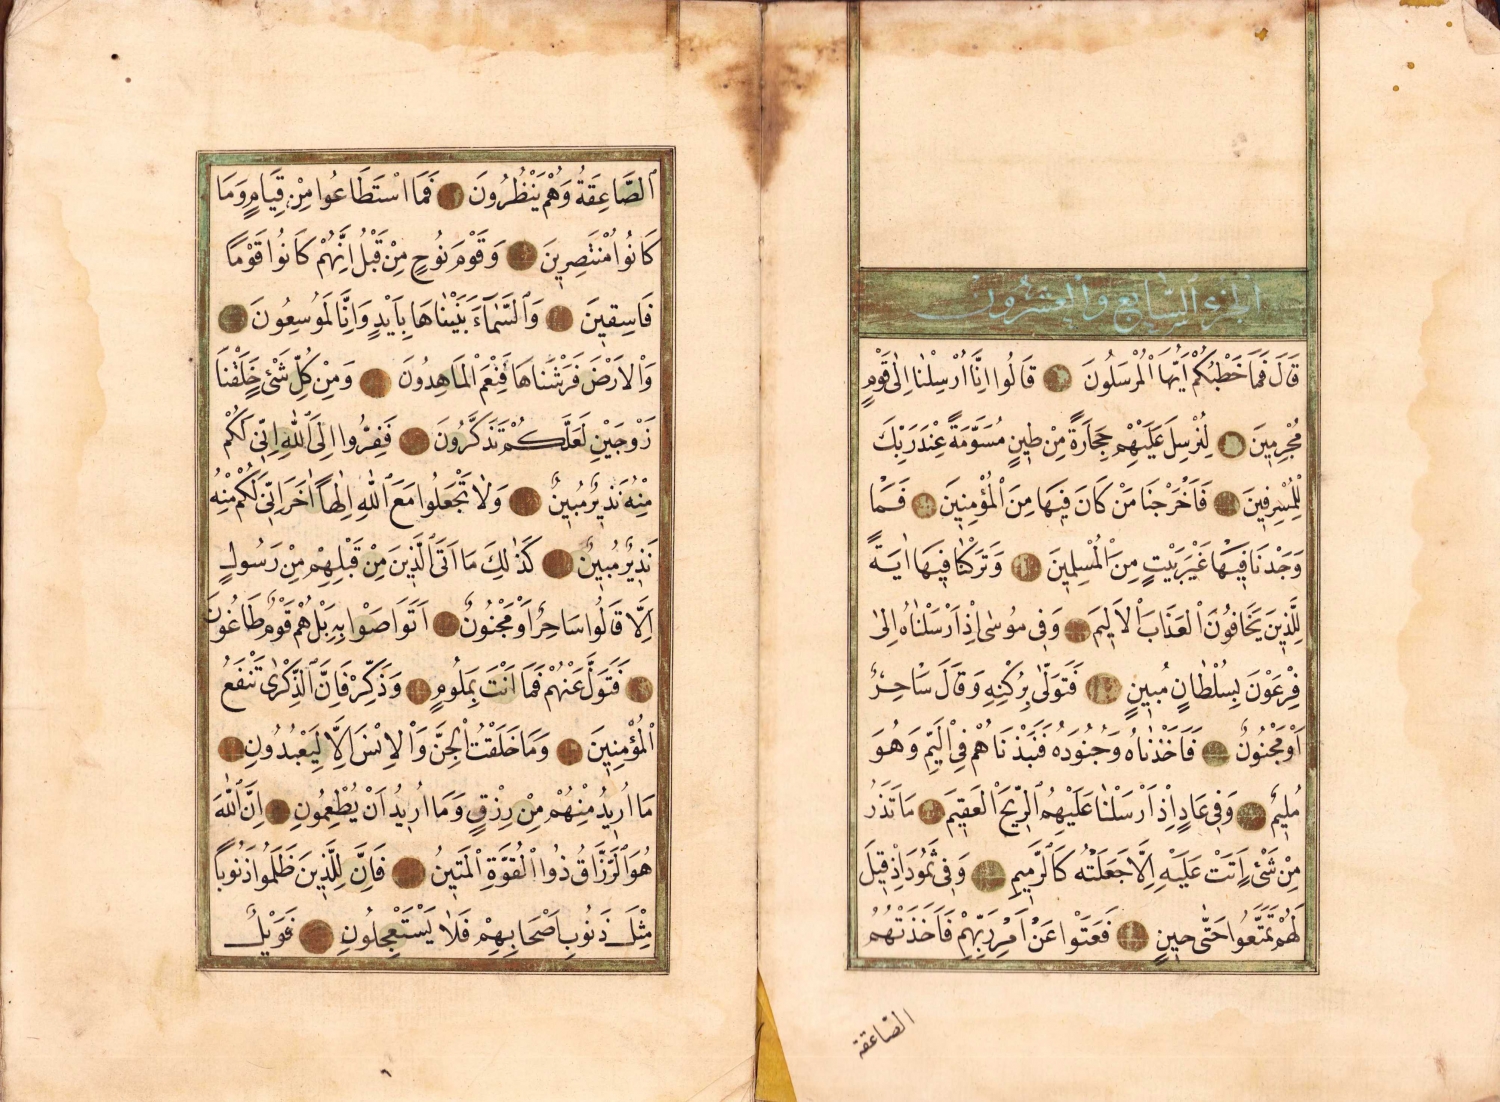 الجزء السابع والعشرون
قَالَ فَمَا خَطْبُكُمْ اَيُّهَا الْمُرْسَلُونَ قَالُوا اِنَّا اُرْسِلْنَا اِلٰى قَوْمٍ
مُجْرِمِينَ لِنُرْسِلَ عَلَيْهِمْ حِجَارَةً مِنْ طِينٍ مُسَوَّمَةً عِنْدَ رَبِّكَ
لِلْمُسْرِفِينَ فَاَخْرَجْنَا مَنْ كَانَ فِيهَا مِنَ الْمُؤْمِنِينَ فَمَا
وَجَدْنَا فِيهَا غَيْرَ بَيْتٍ مِنَ الْمُسْلِمِينَ وَتَرَكْنَا فِيهَا اٰيَةً
لِلَّذِينَ يَخَافُونَ الْعَذَابَ الْاَلِيمَ وَفِي مُوسٰى اِذْ اَرْسَلْنَاهُ اِلٰى
فِرْعَوْنَ بِسُلْطَانٍ مُبِينٍ فَتَوَلّٰى بِرُكْنِهِ وَقَالَ سَاحِرٌ
اَوْ مَجْنُونٌ فَاَخَذْنَاهُ وَجُنُودَهُ فَنَبَذْنَاهُمْ فِي الْيَمِّ وَهُوَ
مُلِيمٌ وَفِي عَادٍ اِذْ اَرْسَلْنَا عَلَيْهِمُ الرِّيحَ الْعَقِيمَ مَا تَذَرُ
مِنْ شَيْءٍ اَتَتْ عَلَيْهِ اِلَّا جَعَلَتْهُ كَالرَّمِيمِ وَفِي ثَمُودَ اِذْ قِيلَ
لَهُمْ تَمَتَّعُوا حَتّٰى حِينٍ فَعَتَوْا عَنْ اَمْرِ رَبِّهِمْ فَاَخَذَتْهُمُ
الصاعقة
الصَّاعِقَةُ وَهُمْ يَنْظُرُونَ فَمَا اسْتَطَاعُوا مِنْ قِيَامٍ وَمَا
كَانُوا مُنْتَصِرِينَ وَقَوْمَ نُوحٍ مِنْ قَبْلُ اِنَّهُمْ كَانُوا قَوْمًا
فَاسِقِينَ وَالسَّمَاءَ بَنَيْنَاهَا بِاَيْدٍ وَاِنَّا لَمُوسِعُونَ
وَالْاَرْضَ فَرَشْنَاهَا فَنِعْمَ الْمَاهِدُونَ وَمِنْ كُلِّ شَيْءٍ خَلَقْنَا
زَوْجَيْنِ لَعَلَّكُمْ تَذَكَّرُونَ فَفِرُّوا اِلَى اللّٰهِ اِنِّي لَكُمْ
مِنْهُ نَذِيرٌ مُبِينٌ وَلَا تَجْعَلُوا مَعَ اللّٰهِ اِلٰهًا اٰخَرَ اِنِّي لَكُمْ مِنْهُ
نَذِيرٌ مُبِينٌ كَذٰلِكَ مَا اَتَى الَّذِينَ مِنْ قَبْلِهِمْ مِنْ رَسُولٍ
اِلَّا قَالُوا سَاحِرٌ اَوْ مَجْنُونٌ اَتَوَاصَوْا بِهِ بَلْ هُمْ قَوْمٌ طَاغُونَ
فَتَوَلَّ عَنْهُمْ فَمَا اَنْتَ بِمَلُومٍ وَذَكِّرْ فَاِنَّ الذِّكْرٰى تَنْفَعُ
الْمُؤْمِنِينَ وَمَا خَلَقْتُ الْجِنَّ وَالْاِنْسَ اِلَّا لِيَعْبُدُونِ
مَا اُرِيدُ مِنْهُمْ مِنْ رِزْقٍ وَمَا اُرِيدُ اَنْ يُطْعِمُونِ اِنَّ اللّٰهَ
هُوَ الرَّزَّاقُ ذُوا الْقُوَّةِ الْمَتِينُ فَاِنَّ لِلَّذِينَ ظَلَمُوا ذَنُوبًا
مِثْلَ ذَنُوبِ اَصْحَابِهِمْ فَلَا يَسْتَعْجِلُونِ فَوَيْلٌ